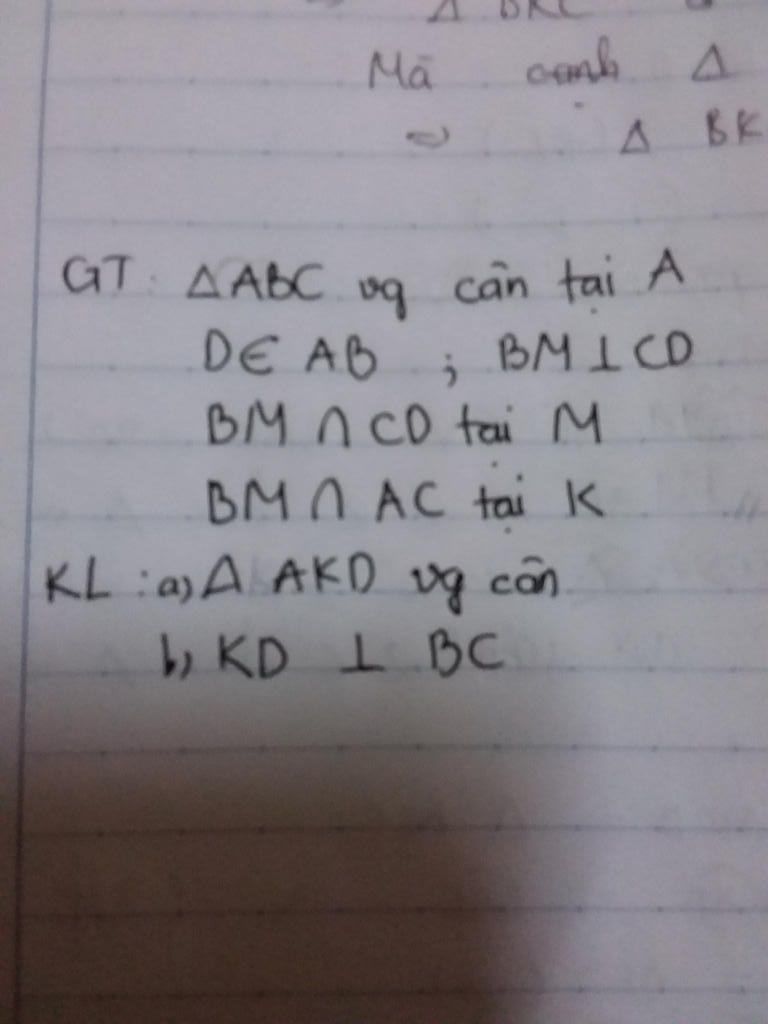 Δ BKC
Mà cạnh Δ
=> Δ BK
GT: ΔABC vg cân tại A
D∈ AB ; BM⊥CD
BM ∩ CD tại M
BM ∩ AC tại K
KL : a) Δ AKD vg cân
b) KD ⊥ BC